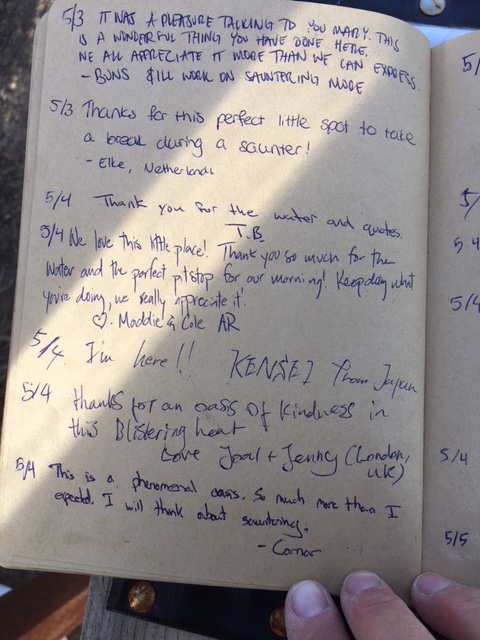 5/3 IT WAS A PLEASURE TALKING TO YOU MARY. THIS
IS A WONDERFUL THING YOU HAVE DONE HERE.
WE ALL APPRECIATE IT MORE THAN WE CAN EXPRESS.
- BUNS $ILL WORK ON SAUNTERING MORE
5/3 Thanks for this perfect little spot to take
a break during a saunter!
- Elke, Netherlands
5/4 Thank you for the water and quotes.
T.B.
5/4 We love this little place! Thank you so much for the
water and the perfect pitstop for our morning! Keep doing what
you're doing, we really appreciate it!
♡- Maddie & Cole AR
5/4 I'm here!! KENSEI From Japan
5/4 thanks for an oasis of kindness in
this Blistering heat
Love Joel + Jenny (London,
UK)
5/4 This is a phenomenal oasis. So much more than I
expected. I will think about sauntering.
- Conor
5/
5/
5/4
5/4
5/4
5/5